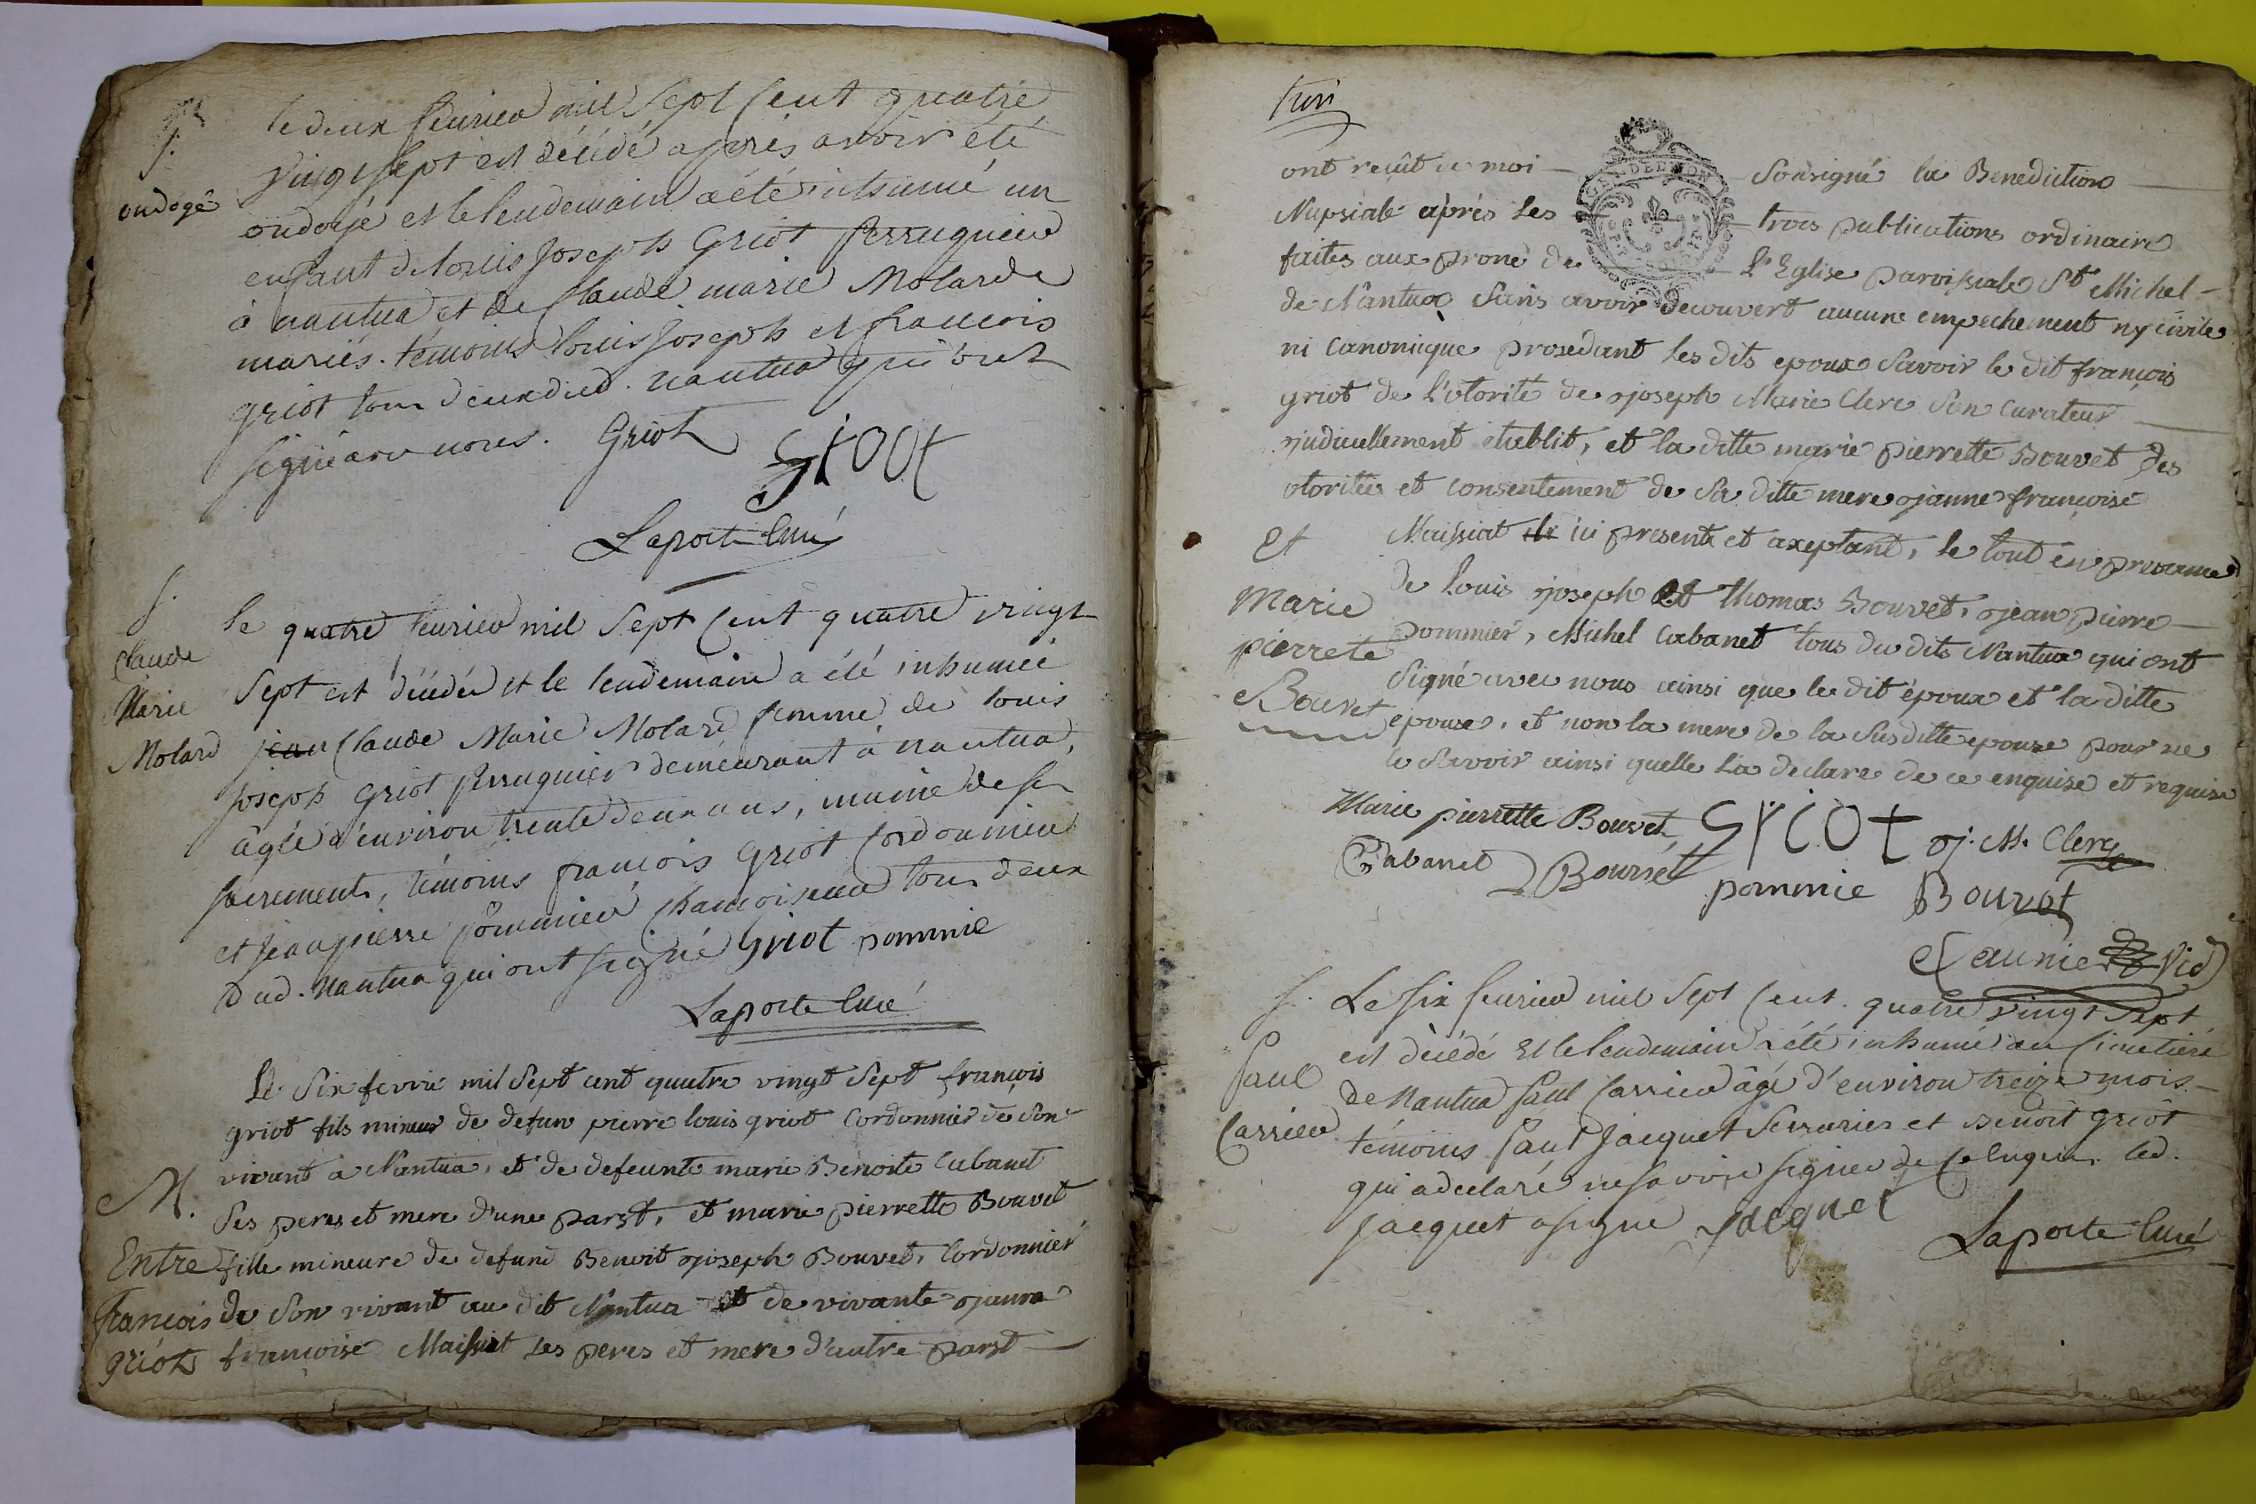 S.
ondoyé
le deux fevrier mil Sept Cent quatre
vingt sept est décédé après avoir été
ondoyé et le lendemain a été inhumé un
enfant de louis Joseph Griot perruquier
à nantua et de Claude marie Molard
mariés. témoins louis Joseph et francois
griot tous deux dud. nantua qui ont
signé avec nous. Griot Griot
Laporte Curé
S.
Claude
Marie
Molard
le quatre fevrier mil Sept Cent quatre vingt
Sept est décédée et le lendemain a été inhumée
jean Claude Marie Molard femme de louis
Joseph Griot perruquier demeurant à nantua,
âgée d'environ trente deux ans, munie de ses
sacrements, témoins francois Griot Cordonnier
et Jean pierre pommier tous deux
Dud. Nantua qui ont signé Griot pommie
Laporte Curé
M.
Entre
francois
griot
Le Six fevrie mil Sept cent quatre vingt Sept francois
griot fils mineur de defun pierre louis griot Cordonnier de Son
vivant a Nantua, et de defeunte marie Benoite Cabanet
Ses peres et mere d'une parst, et marie pierrette Bouvet
fille mineure de defund Benoit joseph Bouvet, Cordonnier
de Son vivant au dit Nantua et de vivante jeanne
francoise Maissiat Ses peres et mere d'autre parst
ont recût de moi Soûsigné la Benediction
Nupsiale aprés les trois publications ordinaire
faites aux prone de L'Eglise paroissiale St Michel
de Nantua Sans avoir decouvert aucune empechement ny civile
ni Canonique prosedant les dits epoux Savoir le dit françois
griot de l'otorité de joseph Marie Clerc Son Curateur
judiciellement etablit, et la ditte marie pierrette Bouvet des
otorités et consentement de Sa ditte mere jeanne françoise
Maissiat ici presente et axeptant, le tout en presence
de louis joseph et Thomas Bouvet, jean pierre
pommier, Michel Cabanet tous du dits Nantua qui ont
Signé avec nous ainsi que le dit époux et la ditte
epouse, et non la mere de la Susditte epouse pour ne
le Savoir ainsi quelle l'a declare de ce enquise et requise
Et
Marie
pierrete
Bouvet
Marie pierrette Bouvet Griot j. M. Clerc
Cabanet Bouvet pommie Bouvet
S.
Paul
Carrier
Le six fevrier mil Sept Cent quatre vingt Sept
est décédé Et le lendemain a été inhumé au Cimetiere
de Nantua Paul Carrier âgé d'environ treize mois
témoins Paul Jacquet Serrurier et Benoit Griot
qui a declaré ne savoir signer de ce enquis led.
Jacquet a signé Jacquet
Laporte Curé